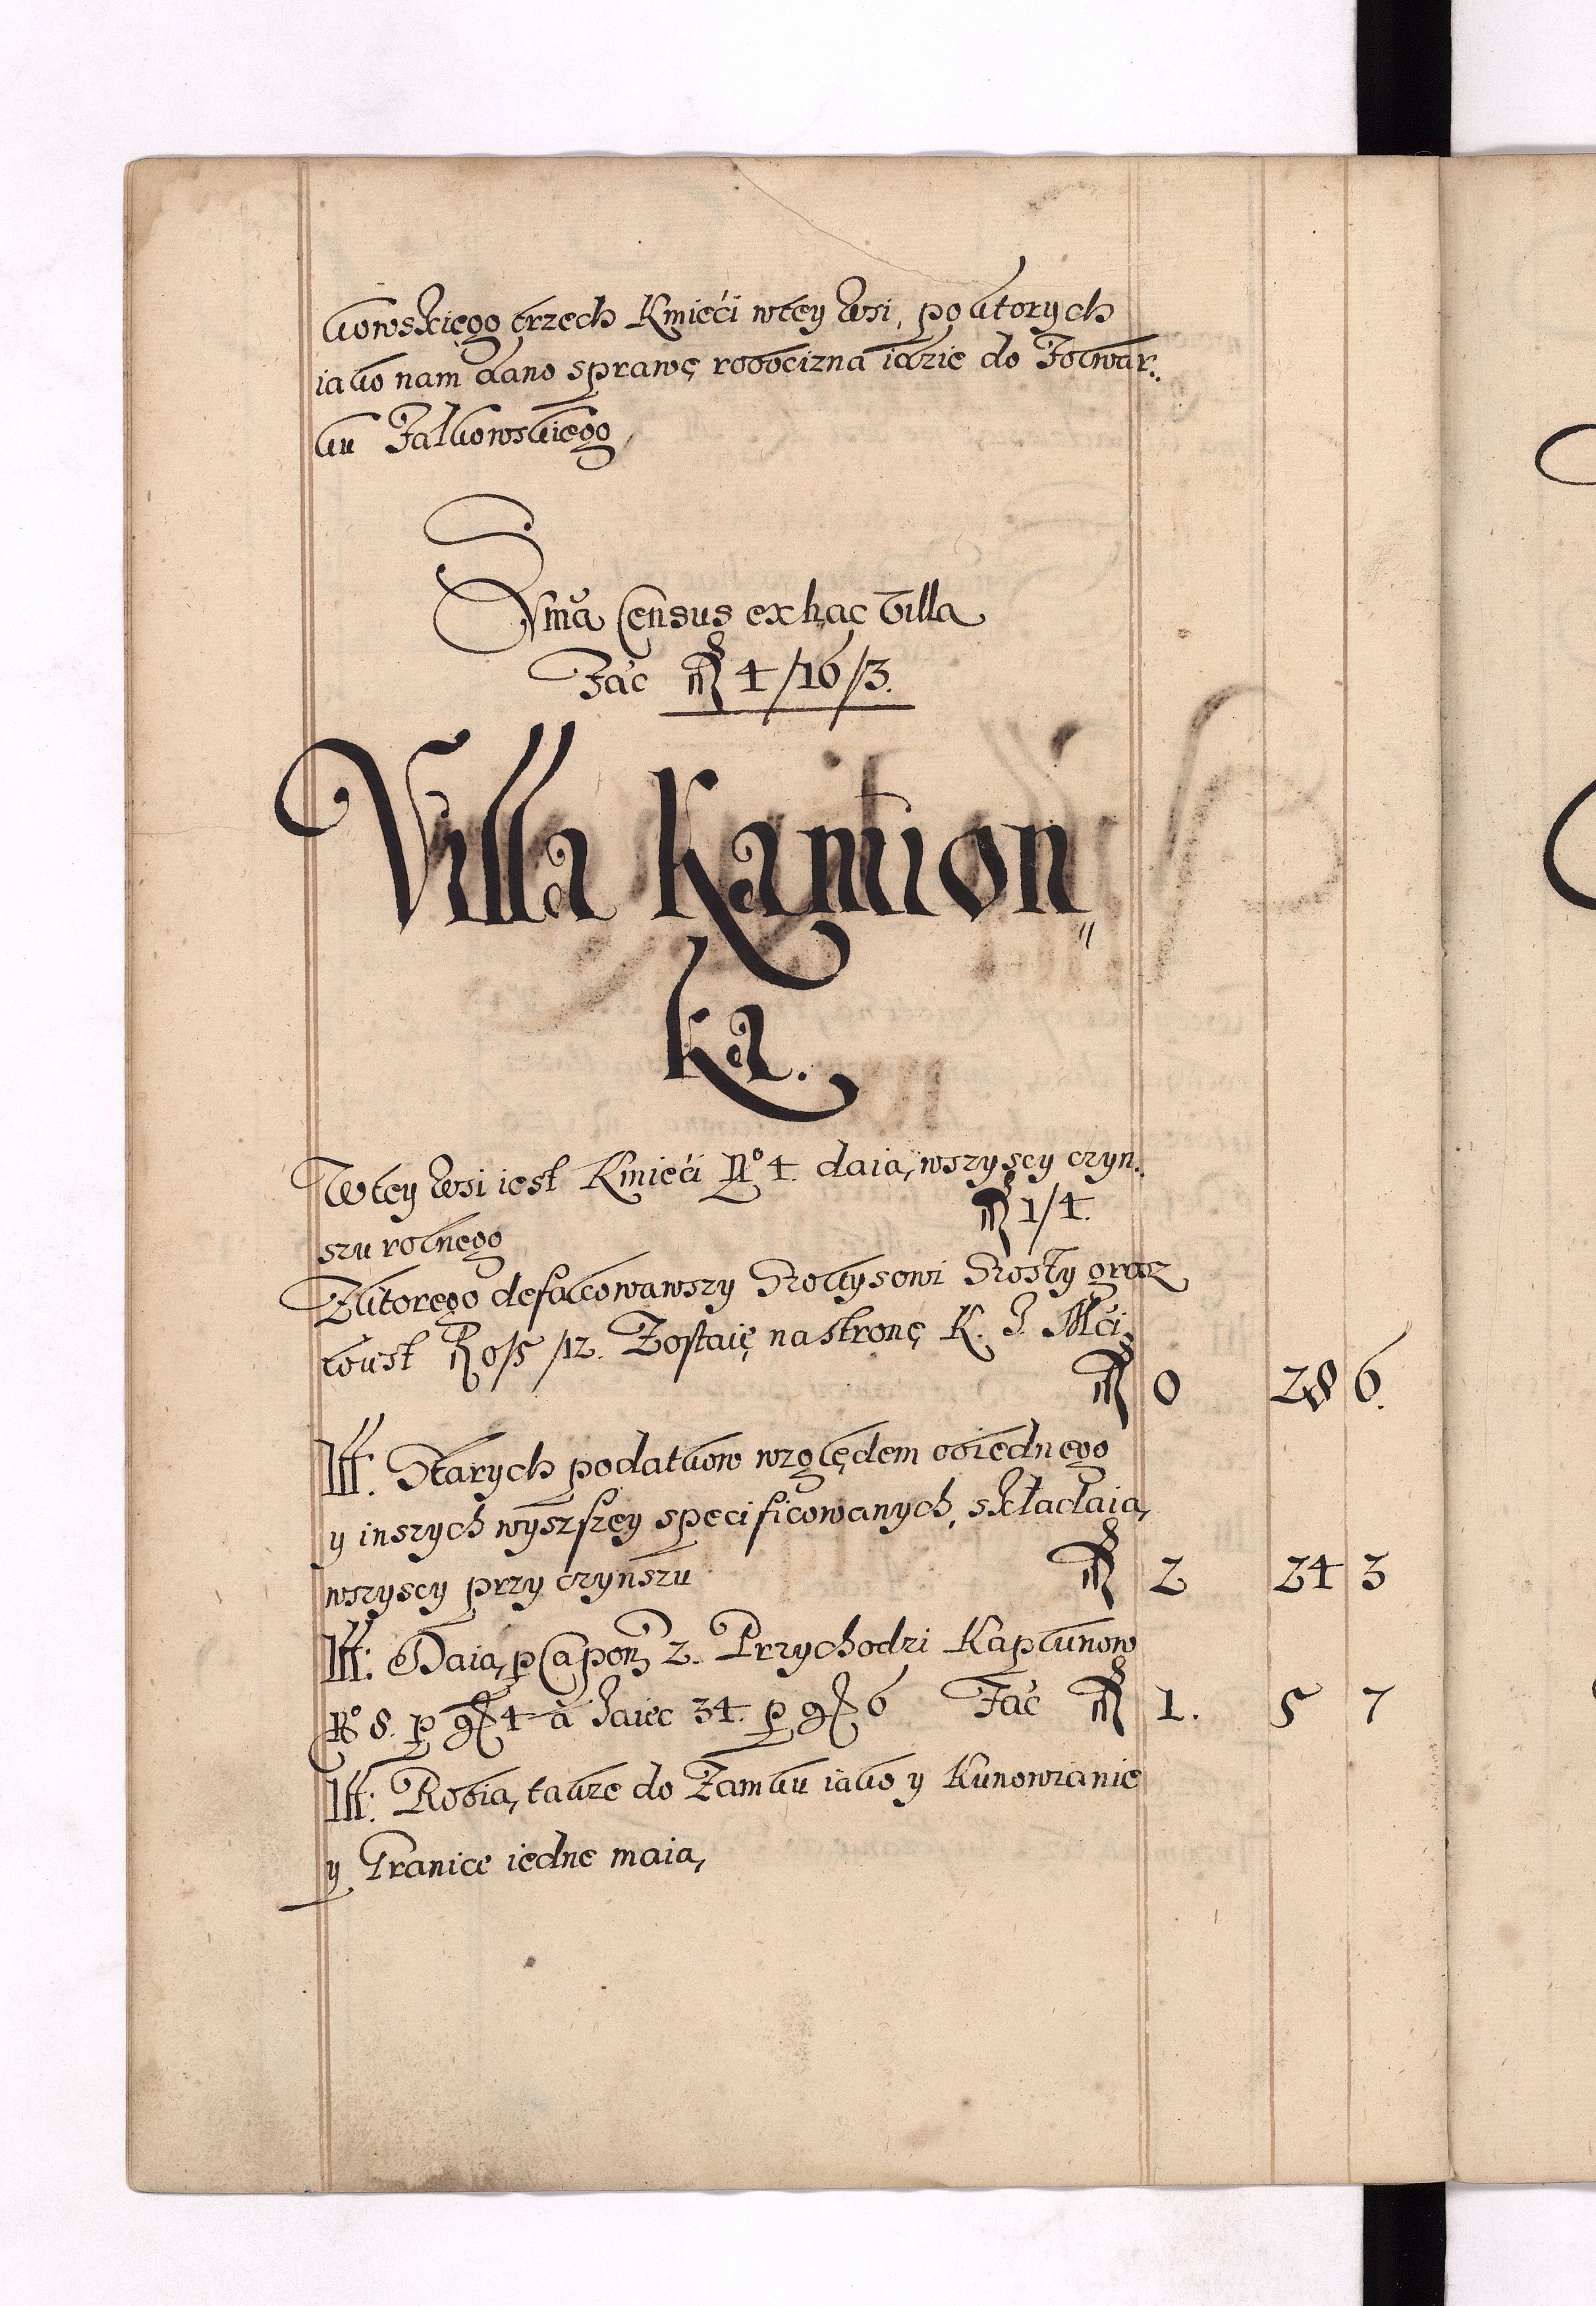 kowskiego trzech Kmieći wtey Wsi, po ktorych
iako nam dano sprawę robocizna idzie do Folwar:
ku Falkowskiego,
Sum̃a Census ex hac Villa
Fac̃ 4/16/3.
Villa Kamion〃
ka.
Wtey Wsi iest Kmieći N° 4. daią wszyscy czyn:
szu rolnego 1/4.
Zktorego defalkowawszy Szołtysowi Szosty grosz
to iest 0/5/12. Zostaię na stronę K. J. Mći.
0 28 6.
Itt. Starych podatkow względem obiednego
y inszych wyszszey specificowanych, składaią
wszyscy przy czynszu 2 24 3
Itt: Daią p Capon 2. Przychodzi Kapłunow
N° 8. p g 4 à Jaiec 34. p g 6 Fac̃ 1. 5 7
Itt: Robią także do Zamku iako y Kunowianie
y Granice iedne maią,